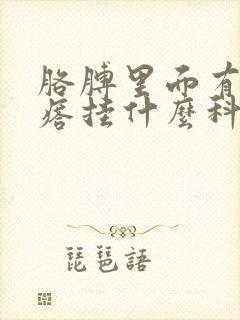 胳膊里面有
痞挂什麼科
琵琶語